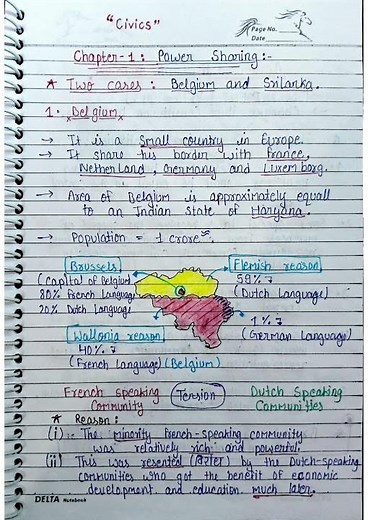 "Civics"
Page No.
Date
Chapter-1: Power Sharing:-
* Two cases: Belgium and Srilanka.
1. Belgium
→ It is a small country in Europe.
→ It share his border with France,
NetherLand, Germany and Luxemborg.
→ Area of Belgium is approximately equall
to an Indian State of Haryana.
→ Population = 1 crore
Brussels
(capital of Belgium
80% French Language
20% Dutch Language
Flemish reason
59%
(Dutch Language)
Wallonia reason
40%
(French Language) (Belgium)
1%
(German Language)
French speaking
Community
Tension
Dutch Speaking
Communities
* Reason:
(i) :- The minority French-speaking community
was relatively rich and powerful.
(ii) This was resented (विरोध) by the Dutch-speaking
communities who got the benefit of economic
development and education much later.
DELTA Notebook